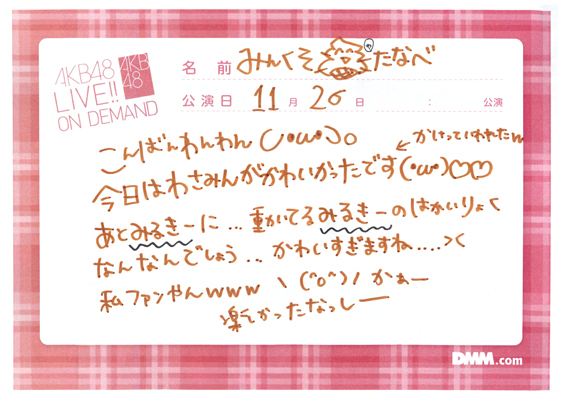 AKB48
LIVE!!
ON DEMAND
AKB
48
名 前 みんくそ たなべ
公演日 11月26日 : 公演
こんばんわんわん (∪・ω・)o
かけっていわれたw
今日はわさみんがかわいかったです(・ω・)♡♡
あとみるきーに... 動いてるみるきーのはかいりょく
なんなんでしょう.. かわいすぎますね....><
私ファンやんwww \(^o^)/ かぁー
楽しかったなっしー
DMM.com